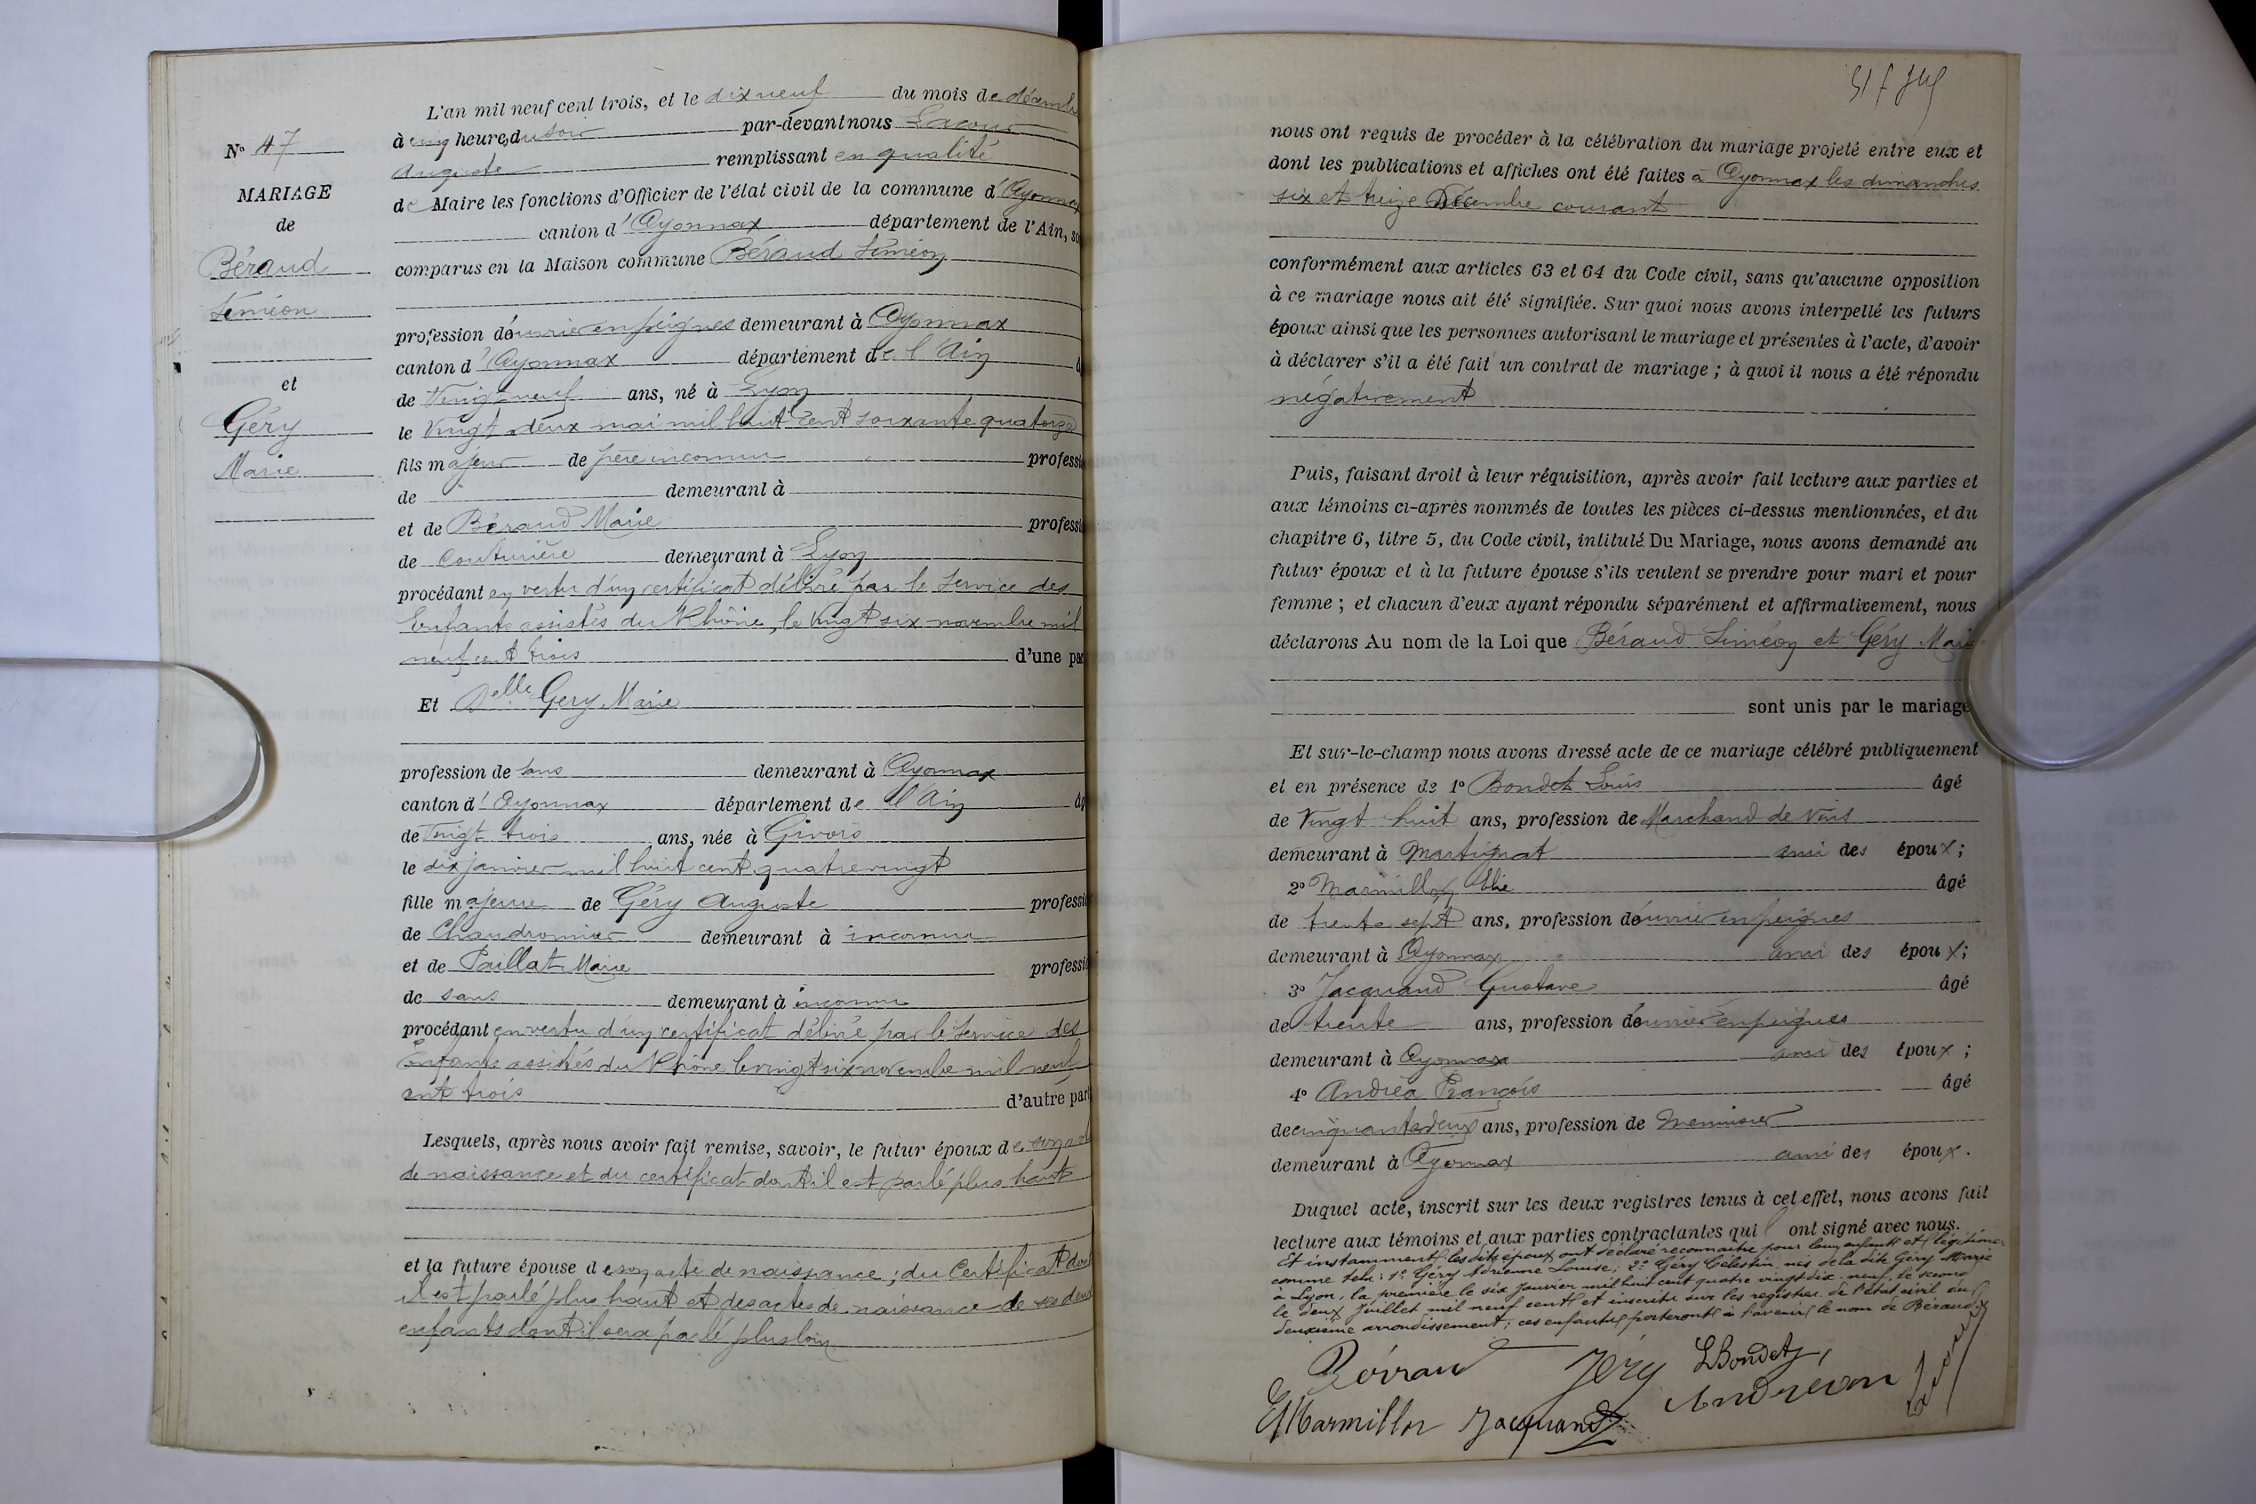 N° 47
MARIAGE
de
Béraud
Siméon
et
Géry
Marie
L'an mil neuf cent trois, et le dix neuf du mois de décembre
à cinq heures du soir par-devant nous Lacour
Auguste remplissant en qualité
de Maire les fonctions d'Officier de l'état civil de la commune d'Oyonnax
canton d'Oyonnax département de l'Ain, so
comparus en la Maison commune Béraud Siméon
profession d'ouvrier en peignes demeurant à Oyonnax
canton d'Oyonnax département de l'Ain
de Vingt neuf ans, né à Lyon
le Vingt deux mai mil huit cent soixante quatorze
fils majeur de père inconnu professi
de demeurant à
et de Béraud Marie professi
de Couturière demeurant à Lyon
procédant en vertu d'un certificat délivré par le Service des
Enfants assistés du Rhône, le vingt six novembre mil
neuf cent trois d'une par
Et Delle Gery Marie
profession de sans demeurant à Oyonnax
canton d'Oyonnax département de l'Ain âg
de Vingt trois ans, née à Givors
le dix janvier mil huit cent quatre vingt
fille majeure de Géry Auguste professi
de Chaudronnier demeurant à inconnu
et de Paillat Marie professi
de sans demeurant à inconnu
procédant en vertu d'un certificat délivré par le Service des
Enfants assistés du Rhône le vingt six novembre mil neuf
cent trois d'autre part
Lesquels, après nous avoir fait remise, savoir, le futur époux de son acte
de naissance et du certificat dont il est parlé plus haut
et la future épouse de son acte de naissance, du Certificat dont
il est parlé plus haut et des actes de naissance de ses deux
enfants dont il sera parlé plus loin
nous ont requis de procéder à la célébration du mariage projeté entre eux et
dont les publications et affiches ont été faites à Oyonnax les dimanches
six et treize Décembre courant
conformément aux articles 63 et 64 du Code civil, sans qu'aucune opposition
à ce mariage nous ait été signifiée. Sur quoi nous avons interpellé les futurs
époux ainsi que les personnes autorisant le mariage et présentes à l'acte, d'avoir
à déclarer s'il a été fait un contrat de mariage ; à quoi il nous a été répondu
négativement
Puis, faisant droit à leur réquisition, après avoir fait lecture aux parties et
aux témoins ci-après nommés de toutes les pièces ci-dessus mentionnées, et du
chapitre 6, titre 5, du Code civil, intitulé Du Mariage, nous avons demandé au
futur époux et à la future épouse s'ils veulent se prendre pour mari et pour
femme ; et chacun d'eux ayant répondu séparément et affirmativement, nous
déclarons Au nom de la Loi que Béraud Siméon et Géry Marie
sont unis par le mariage
Et sur-le-champ nous avons dressé acte de ce mariage célébré publiquement
et en présence de 1° Bondet Louis âgé
de Vingt huit ans, profession de Marchand de Vins
demeurant à Martignat ami des époux ;
2° Marmillon Elie âgé
de trente sept ans, profession d'ouvrier en peignes
demeurant à Oyonnax ami des époux ;
3° Jacquand Gustave âgé
de trente ans, profession d'ouvrier en peignes
demeurant à Oyonnax ami des époux ;
4° Andréa François âgé
de cinquante deux ans, profession de Menuisier
demeurant à Oyonnax ami des époux.
Duquel acte, inscrit sur les deux registres tenus à cet effet, nous avons fait
lecture aux témoins et aux parties contractantes qui ont signé avec nous.
Et instamment les dits époux ont déclaré reconnaitre pour leurs enfants et légitimer
comme tels : 1° Géry Adrienne Louise ; 2° Géry Célestin, nés de la dite Géry Marie
à Lyon, la première le six Janvier mil huit cent quatre vingt dix neuf, le second
le deux Juillet mil neuf cent et inscrits sur les registres de l'état civil du
deuxième arrondissement ; ces enfants porteront à l'avenir le nom de Béraud.
Béraud Géry LBondet
EMarmillon Jacquand